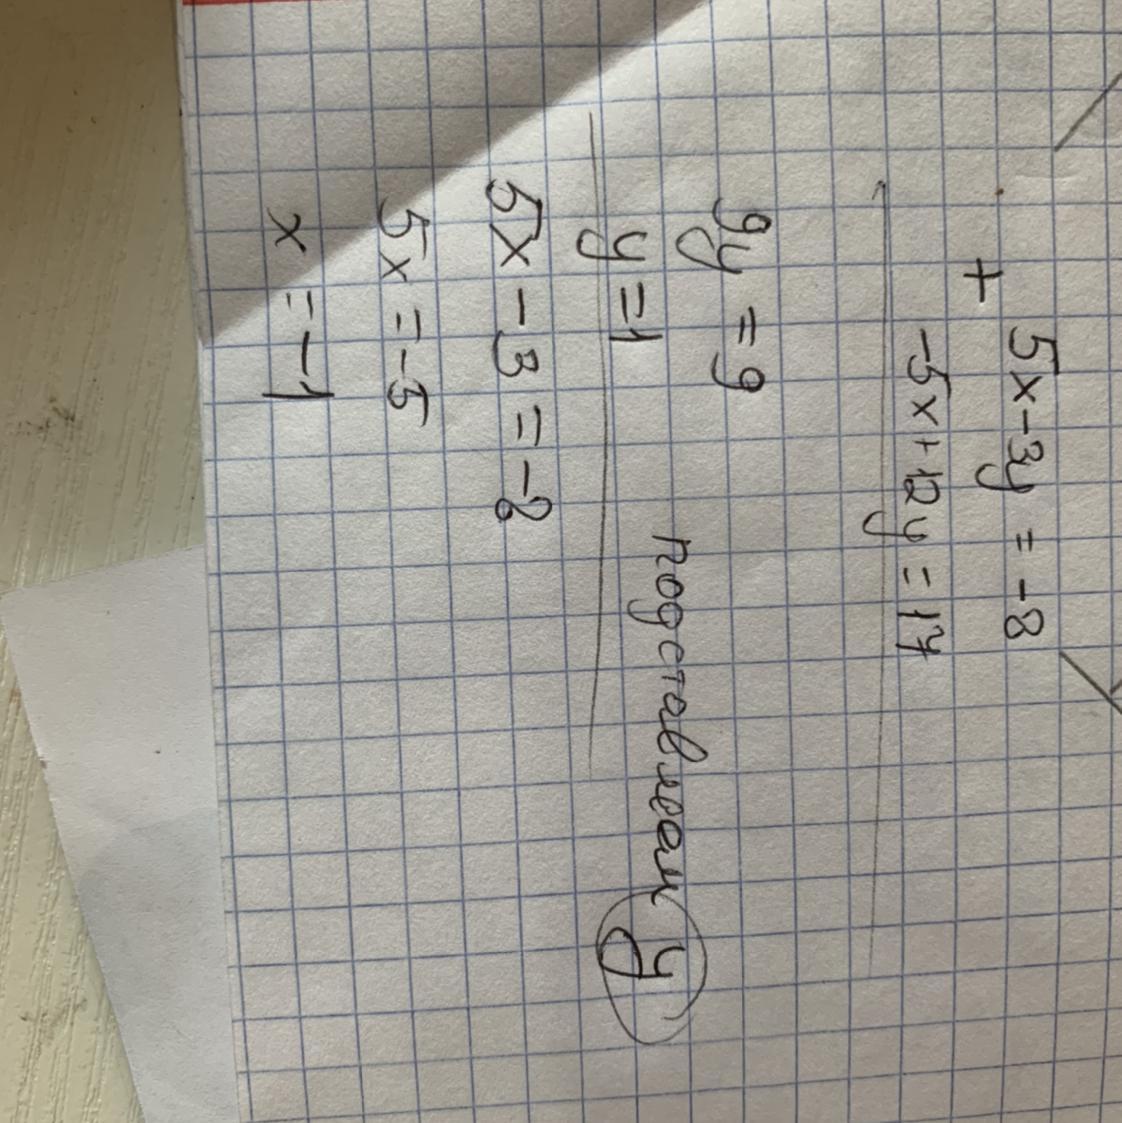 +
5x-3y = -8
-5x+12y = 17
9y = 9
y = 1
подставляем y
5x - 3 = -8
5x = -5
x = -1